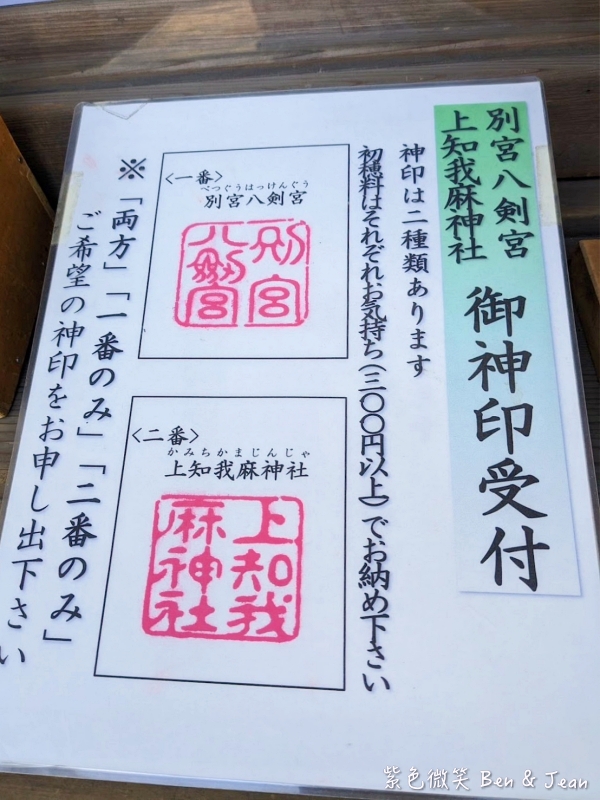 別宮八剣宮
上知我麻神社
御神印受付
神印は二種類あります
初穂料はそれぞれお気持ち(三〇〇円以上)でお納め下さい
<一番>
べつぐうはっけんぐう
別宮八剣宮
別宮
八剱宮
<二番>
かみちかまじんじゃ
上知我麻神社
上知我
麻神社
※「両方」「一番のみ」「二番のみ」
ご希望の神印をお申し出下さい
紫色微笑 Ben & Jean